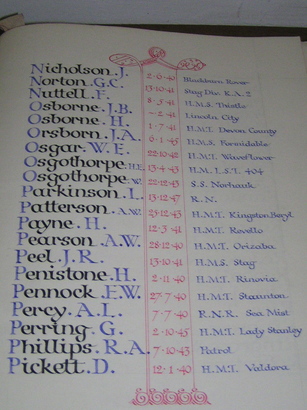 Nicholson. J. 2-6-40 Blackburn Rover
Norton. G.C. 13-10-41 Stag Div. R.A. 2
Nuttell. F. 8-5-41 H.M.S. Thistle
Osborne. J.B. -2-41 Lincoln City
Osborne. H. 1-7-41 H.M.T. Devon County
Orsborn. J.A. 6-1-45 H.M.S. Formidable
Osgar. W.E. 22-10-42 H.M.T. Waveflower
Osgothorpe. H.E. 13-4-43 H.M. L.S.T. 404
Osgothorpe. W. 22-12-43 S.S. Norhauk
Parkinson. L. 13-12-47 R.N.
Patterson. A.W. 25-12-43 H.M.T. Kingston Beryl
Payne. H. 12-3-41 H.M.T. Revello
Pearson. A.W. 28-12-40 H.M.T. Orizaba
Peel. J.R. 13-10-41 H.M.S. Stag
Penistone. H. 2-11-40 H.M.T. Rinovia
Pennock. E.W. 27-7-40 H.M.T. Staunton
Percy. A.L. 7-7-40 R.N.R. Sea Mist
Perring. G. 2-10-45 H.M.T. Lady Stanley
Phillips. R.A. 7-10-43 Patrol
Pickett. D. 12-1-40 H.M.T. Valdora